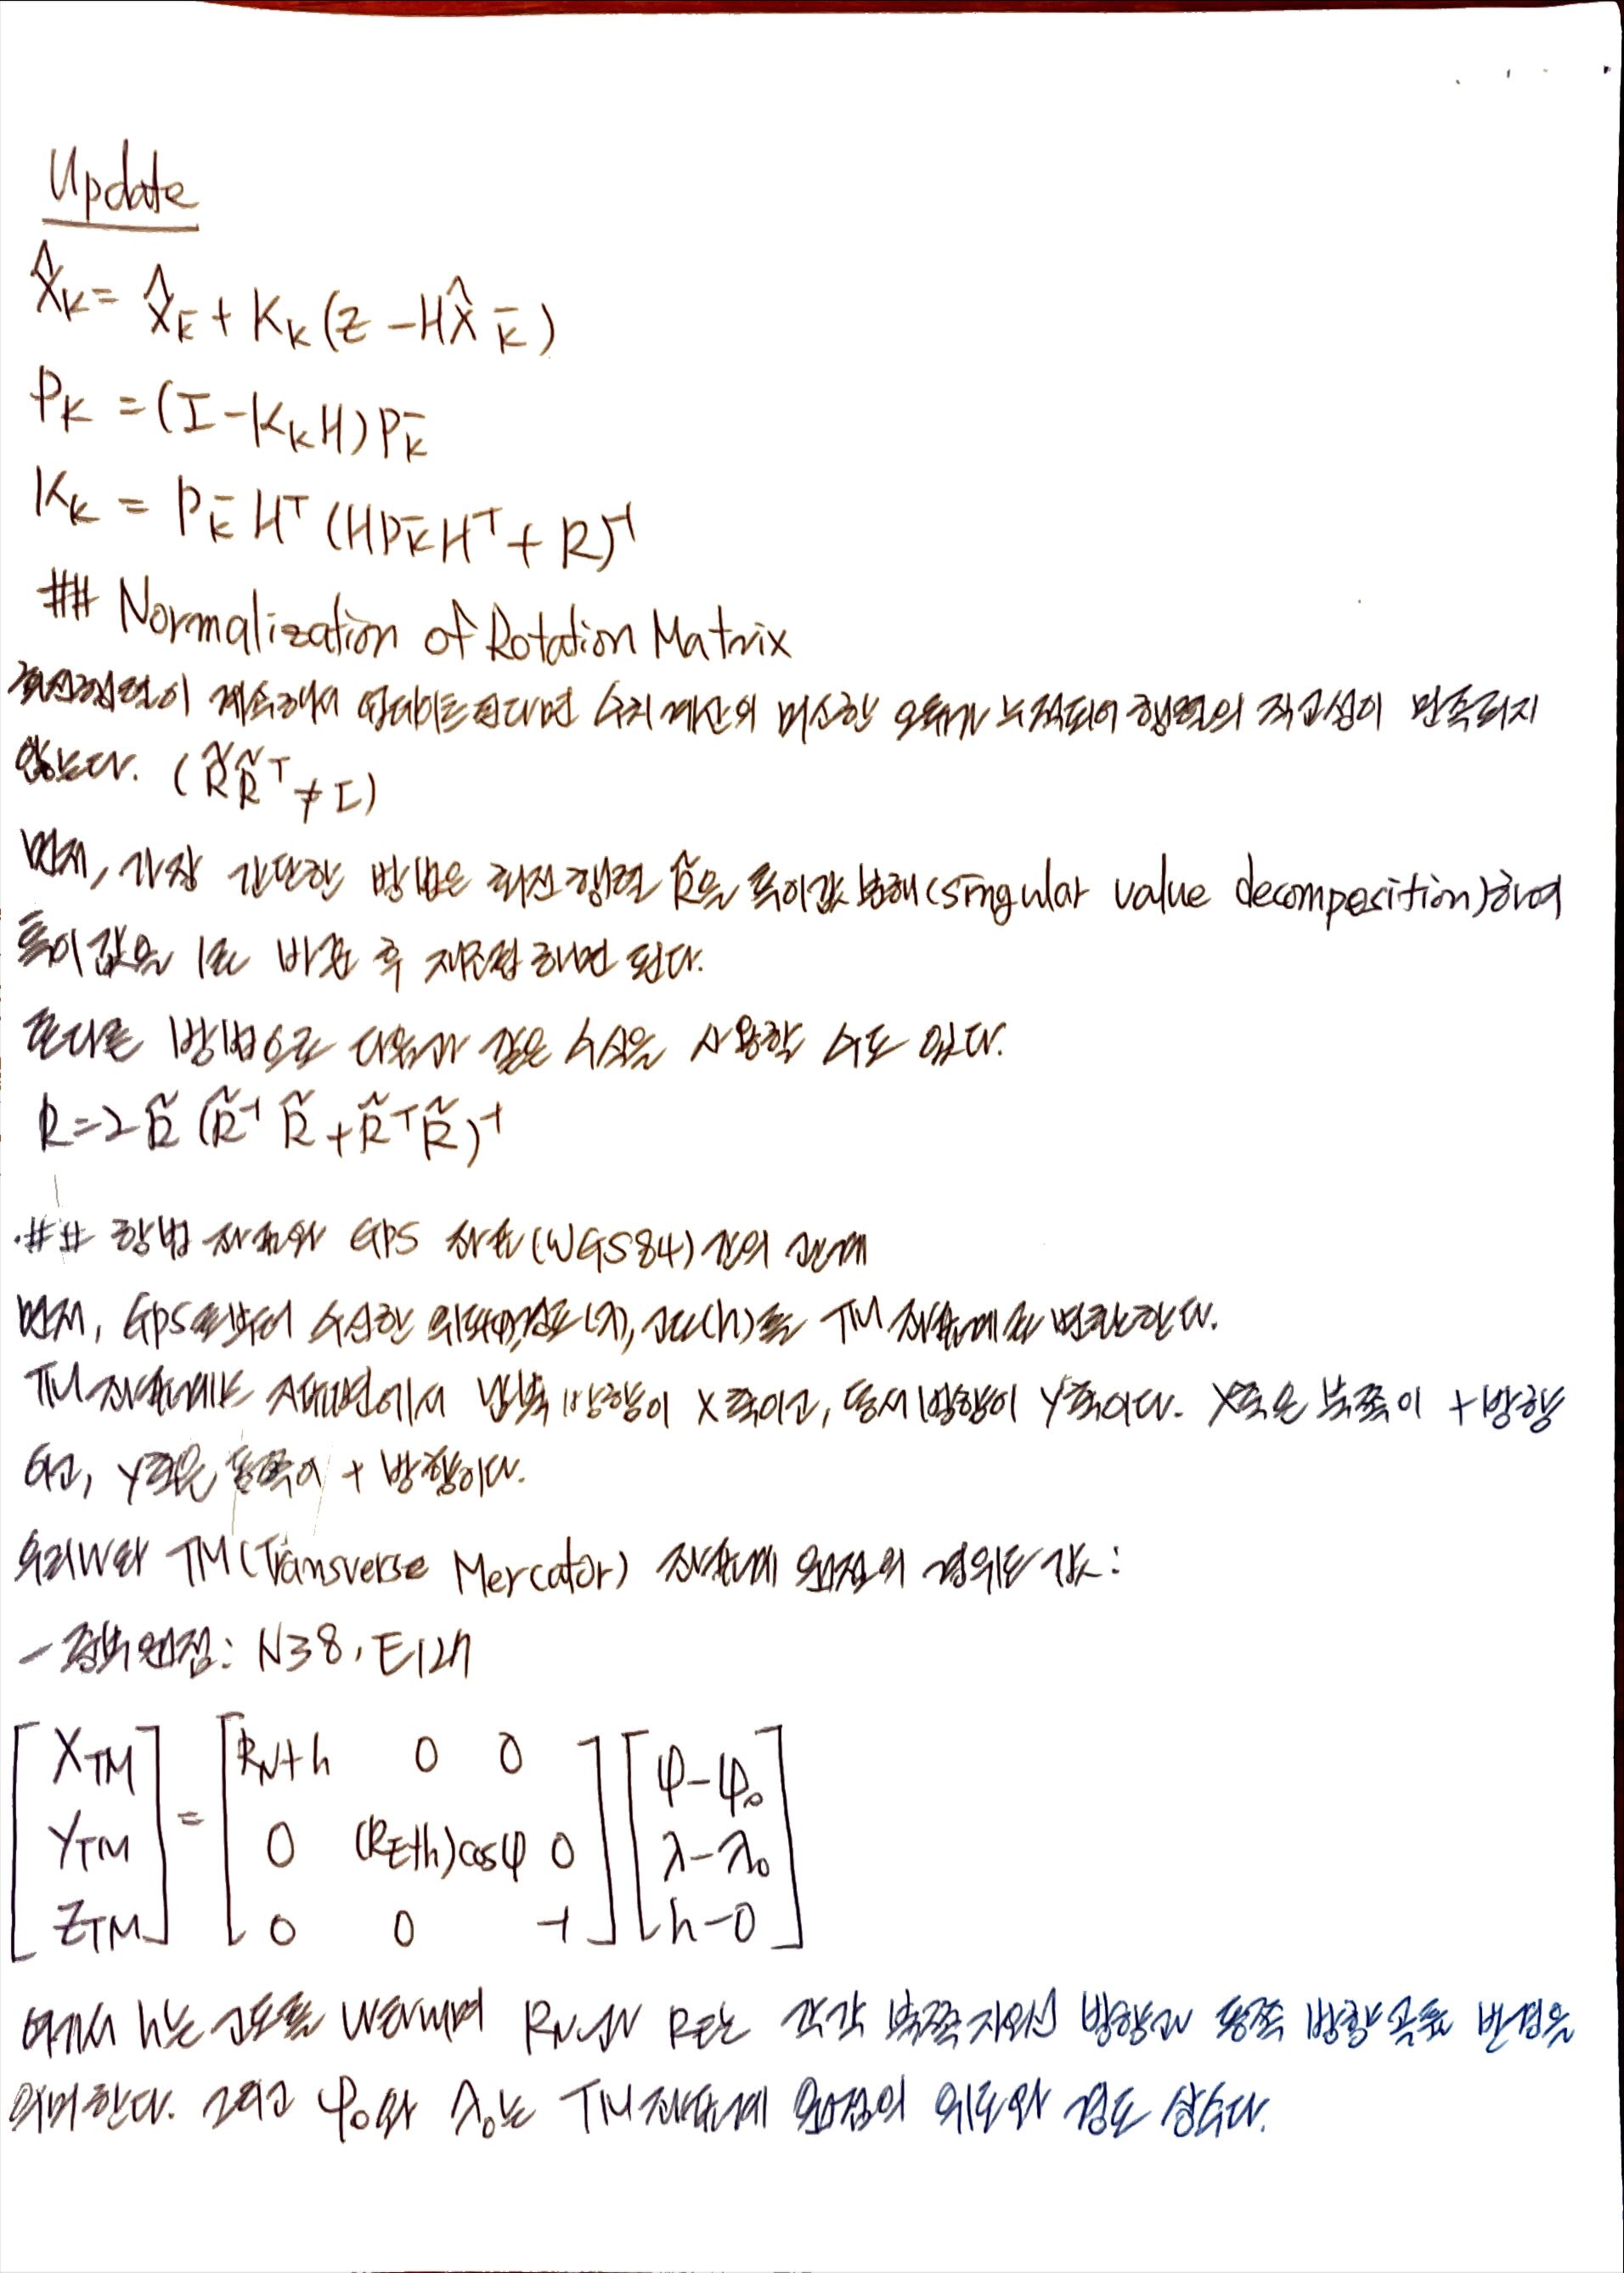 Update
X̂ₖ = X̂ₖ⁻ + Kₖ(z - HX̂ₖ⁻)
Pₖ = (I - KₖH)Pₖ⁻
Kₖ = Pₖ⁻Hᵀ(HPₖ⁻Hᵀ + R)⁻¹
## Normalization of Rotation Matrix
회전행렬이 계속해서 업데이트 된다면 수치 계산의 미소한 오류가 누적되어 행렬의 직교성이 만족되지
않는다. (R̃R̃ᵀ ≠ I)
먼저, 가장 간단한 방법은 회전 행렬 R̃을 특이값 분해(singular value decomposition)하여
특이값을 1로 바꾼 후 재조정하면 된다.
또다른 방법으로 다음과 같은 수식을 사용할 수도 있다.
R = 2R̃(R̃⁻¹R̃ + R̃ᵀR̃)⁻¹
## 항법 좌표와 GPS 좌표(WGS84)간의 관계
먼저, GPS로부터 수신한 위도(φ),경도(λ),고도(h)를 TM 좌표계로 변환한다.
TM좌표계는 지평면에서 남북 방향이 X축이고, 동서 방향이 Y축이다. X축은 북쪽이 +방향
이고, Y축은 동쪽이 + 방향이다.
우리나라 TM(Transverse Mercator) 좌표계 원점의 경위도 값:
- 중부원점: N38, E127
[X_TM] = [R_N+h 0 0] [φ-φ₀]
[Y_TM] [0 (R_E+h)cosφ 0] [λ-λ₀]
[Z_TM] [0 0 -1] [h-0]
여기서 h는 고도를 나타내며 R_N과 R_E는 각각 북쪽 자오선 방향과 동쪽 방향 곡률 반경을
의미한다. 그리고 φ₀와 λ₀는 TM좌표계 원점의 위도와 경도 상수다.